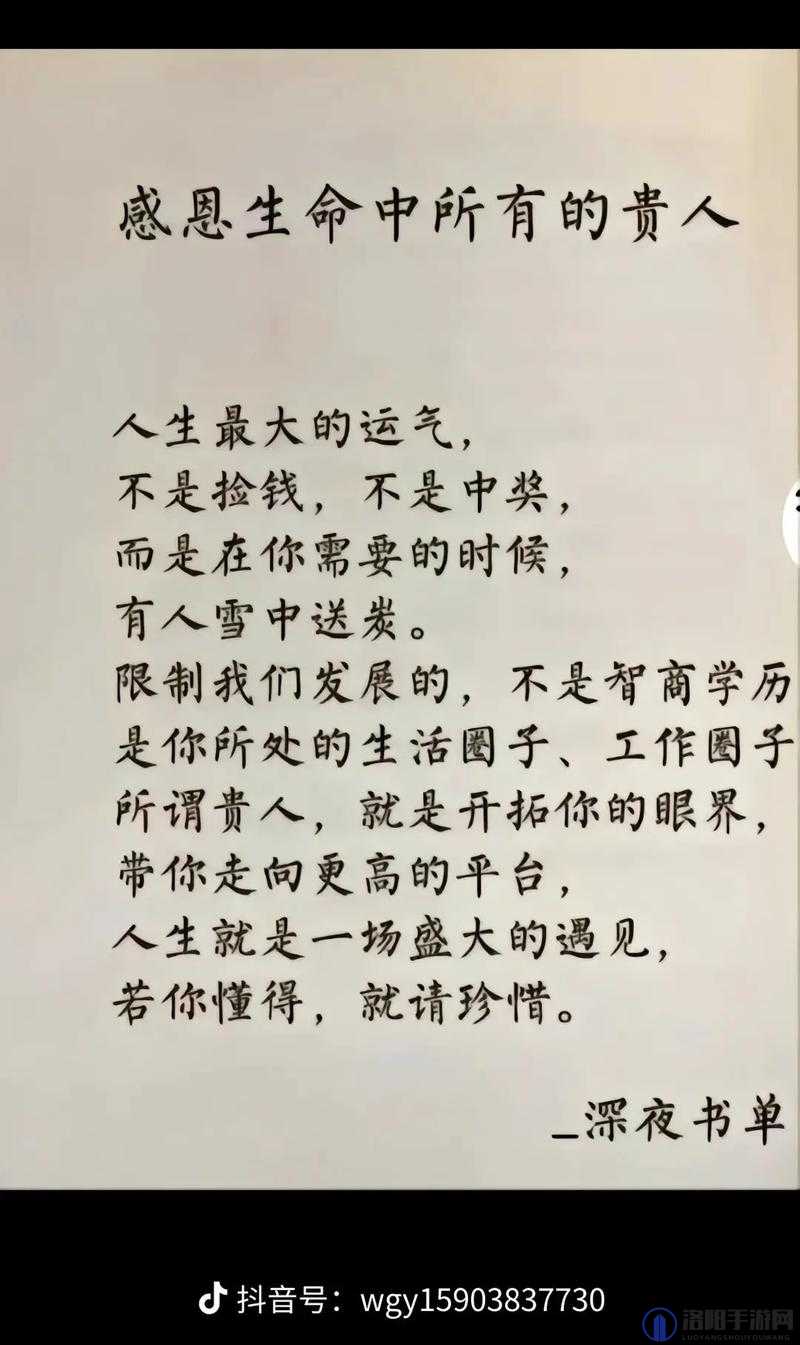 感恩生命中所有的贵人
人生最大的运气，
不是捡钱，不是中奖，
而是在你需要的时候，
有人雪中送炭。
限制我们发展的，不是智商学历
是你所处的生活圈子、工作圈子
所谓贵人，就是开拓你的眼界，
带你走向更高的平台，
人生就是一场盛大的遇见，
若你懂得，就请珍惜。
_深夜书单
抖音号：wgy15903837730
洛阳手游网
LUOYANGSHOUYOUWANG